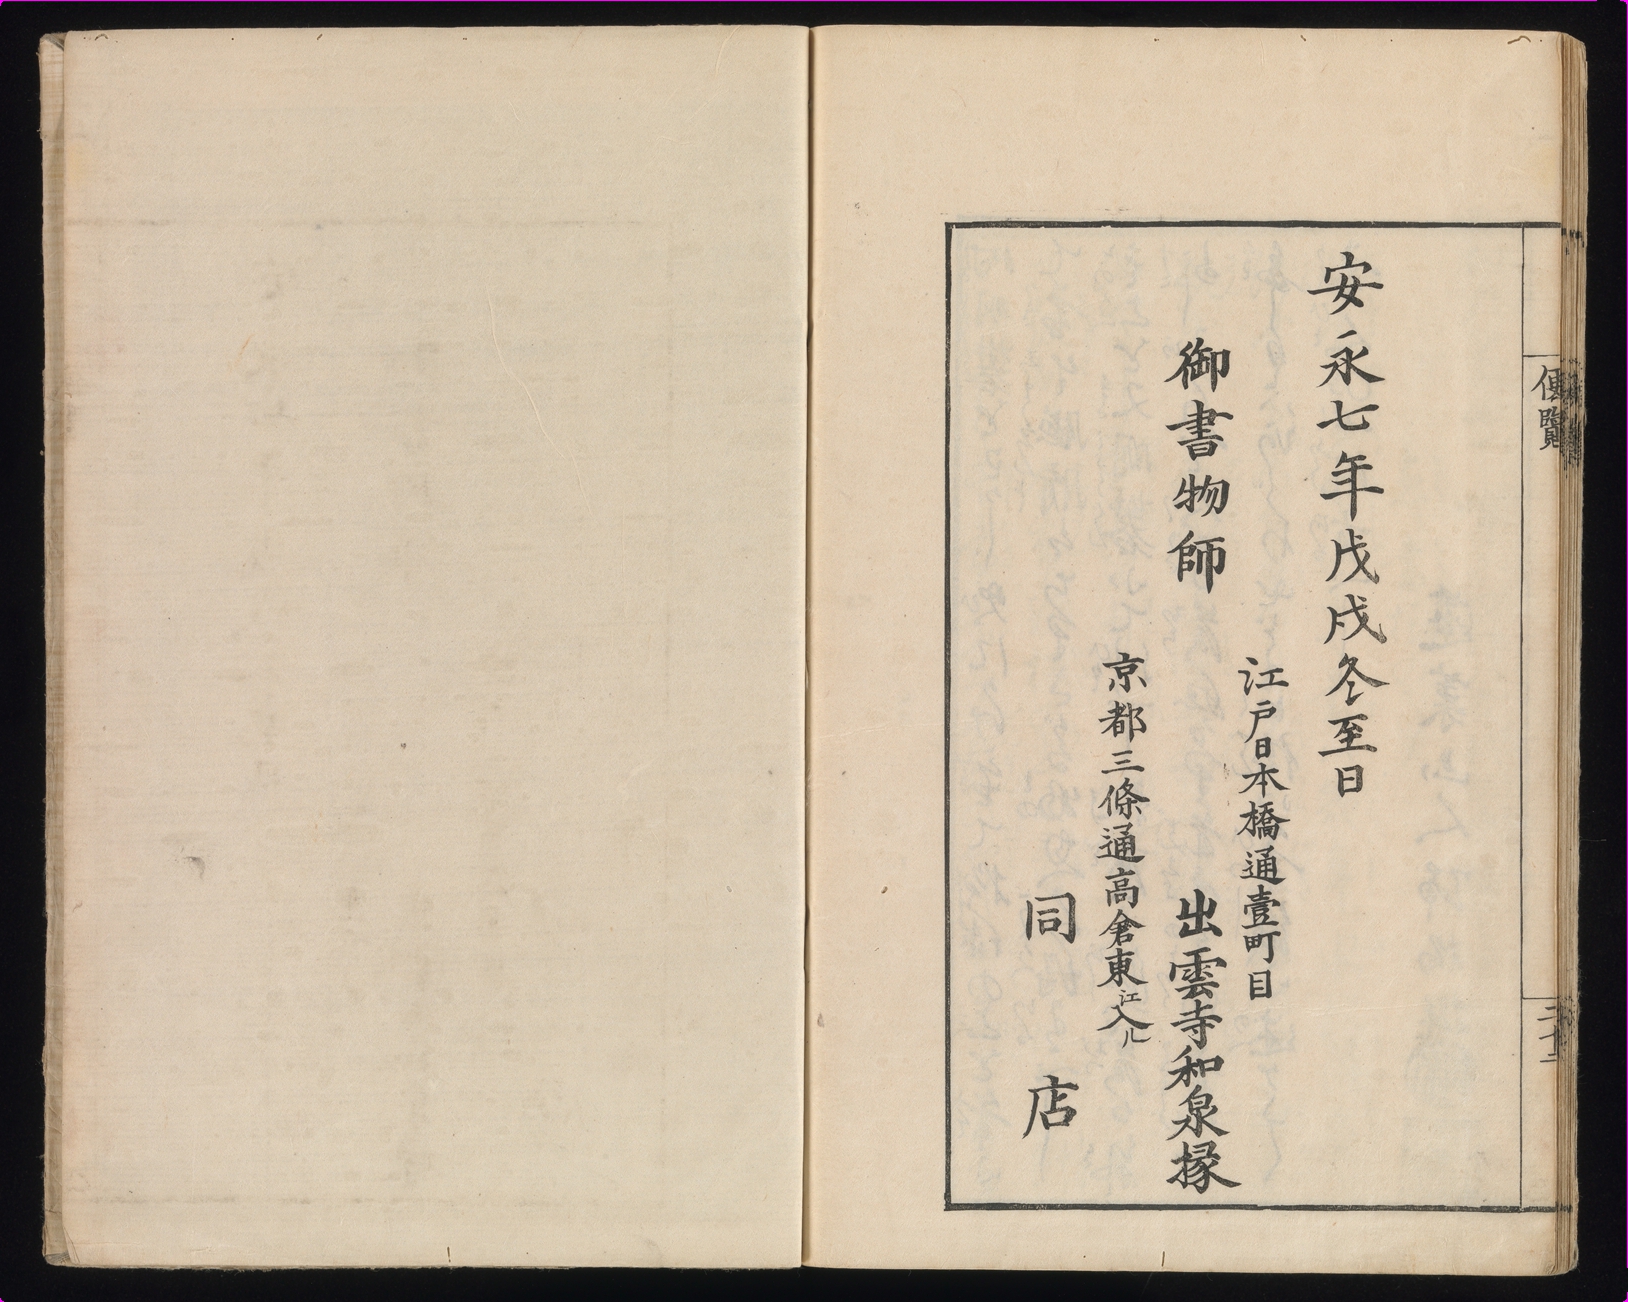 安永七年戊戌冬至日
江戸日本橋通壹町目
御書物師
出雲寺和泉掾
京都三條通高倉東江入ル
同店
覽